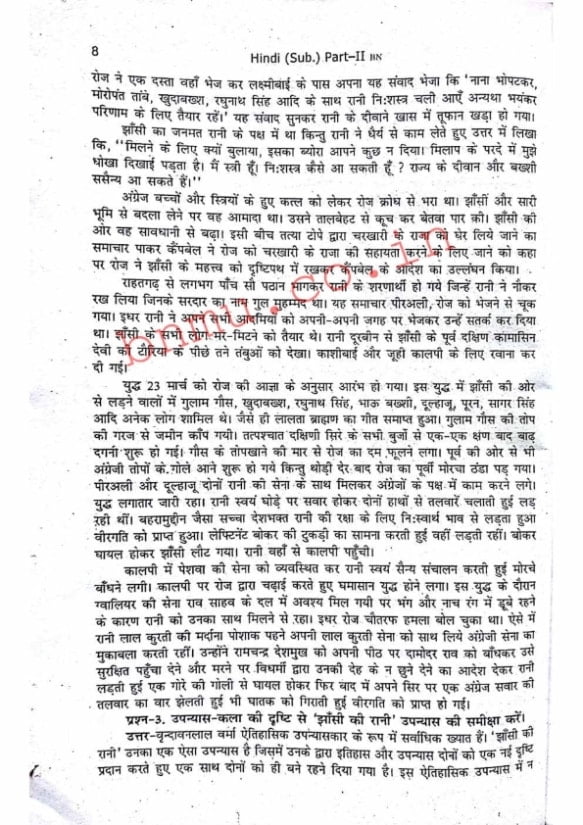 8
Hindi (Sub.) Part–II BN
रोज ने एक दस्ता वहाँ भेज कर लक्ष्मीबाई के पास अपना यह संवाद भेजा कि 'नाना भोपटकर,
मोरोपंत तांबे, खुदाबख्श, रघुनाथ सिंह आदि के साथ रानी नि:शस्त्र चली आएँ अन्यथा भयंकर
परिणाम के लिए तैयार रहें।' यह संवाद सुनकर रानी के दीवाने खास में तूफान खड़ा हो गया।
झाँसी का जनमत रानी के पक्ष में था किन्तु रानी ने धैर्य से काम लेते हुए उत्तर में लिखा
कि, "मिलने के लिए क्यों बुलाया, इसका ब्योरा आपने कुछ न दिया। मिलाप के परदे में मुझे
धोखा दिखाई पड़ता है। मैं स्त्री हूँ। नि:शस्त्र कैसे आ सकती हूँ ? राज्य के दीवान और बख्शी
ससैन्य आ सकते हैं।"
अंग्रेज बच्चों और स्त्रियों के हुए कत्ल को लेकर रोज क्रोध से भरा था। झाँसी और सारी
भूमि से बदला लेने पर वह आमादा था। उसने तालबेहट से कूच कर बेतवा पार की। झाँसी की
ओर वह सावधानी से बढ़ा। इसी बीच तत्या टोपे द्वारा चरखारी के राजा को घेर लिये जाने का
समाचार पाकर कैंपबेल ने रोज को चरखारी के राजा की सहायता करने के लिए जाने को कहा
पर रोज ने झाँसी के महत्त्व को दृष्टिपथ में रखकर कैंपबेल के आदेश का उल्लंघन किया।
राहतगढ़ से लगभग पाँच सौ पठान भागकर रानी के शरणार्थी हो गये जिन्हें रानी ने नौकर
रख लिया जिनके सरदार का नाम गुल मुहम्मद था। यह समाचार पीरअली, रोज को भेजने से चूक
गया। इधर रानी ने अपने सभी आदमियों को अपनी-अपनी जगह पर भेजकर उन्हें सतर्क कर दिया
था। झाँसी के सभी लोग मर-मिटने को तैयार थे। रानी दूरबीन से झाँसी के पूर्व दक्षिण कामासिन
देवी की टौरिया के पीछे तने तंबुओं को देखा। काशीबाई और जूही कालपी के लिए रवाना कर
दी गई।
युद्ध 23 मार्च को रोज की आज्ञा के अनुसार आरंभ हो गया। इस युद्ध में झाँसी की ओर
से लड़ने वालों में गुलाम गौस, खुदाबख्श, रघुनाथ सिंह, भाऊ बख्शी, दूल्हाजू, पूरन, सागर सिंह
आदि अनेक लोग शामिल थे। जैसे ही लालता ब्राह्मण का गीत समाप्त हुआ। गुलाम गौस की तोप
की गरज से जमीन काँप गयी। तत्पश्चात दक्षिणी सिरे के सभी बुर्जो से एक-एक क्षण बाद बाढ़
दगनी शुरू हो गई। गौस के तोपखाने की मार से रोज का दम फूलने लगा। पूर्व की ओर से भी
अंग्रेजी तोपों के गोले आने शुरू हो गये किन्तु थोड़ी देर बाद रोज का पूर्वी मोरचा ठंडा पड़ गया।
पीरअली और दूल्हाजू दोनों रानी की सेना के साथ मिलकर अंग्रेजों के पक्ष में काम करने लगे।
युद्ध लगातार जारी रहा। रानी स्वयं घोड़े पर सवार होकर दोनों हाथों से तलवारें चलाती हुई लड़
रही थीं। बहरामुद्दीन जैसा सच्चा देशभक्त रानी की रक्षा के लिए नि:स्वार्थ भाव से लड़ता हुआ
वीरगति को प्राप्त हुआ। लेफ्टिनेंट बोकर की टुकड़ी का सामना करती हुई वहीं लड़ती रहीं। बोकर
घायल होकर झाँसी लौट गया। रानी वहाँ से कालपी पहुँची।
कालपी में पेशवा की सेना को व्यवस्थित कर रानी स्वयं सैन्य संचालन करती हुई मोरचे
बाँधने लगी। कालपी पर रोज द्वारा चढ़ाई करते हुए घमासान युद्ध होने लगा। इस युद्ध के दौरान
ग्वालियर की सेना राव साहब के दल में अवश्य मिल गयी पर भंग और नाच रंग में डूबे रहने
के कारण रानी को उनका साथ मिलने से रहा। इधर चौतरफ हमला बोल चुका था। ऐसे में
रानी लाल कुरती की मर्दाना पोशाक पहने अपनी लाल कुरती सेना को साथ लिये अंग्रेजी सेना का
मुकाबला करती रहीं। उन्होंने रामचन्द्र देशमुख को अपनी पीठ पर दामोदर राव को बाँधकर उसे
सुरक्षित पहुँचा देने और मरने पर विधर्मी द्वारा उनकी देह के न छुने देने का आदेश देकर रानी
लड़ती हुई एक गोरे की गोली से घायल होकर फिर बाद में अपने सिर पर एक अंग्रेज सवार की
तलवार का वार झेलती हुई भी घातक को गिराती हुई वीरगति को प्राप्त हो गई।
प्रश्न-3. उपन्यास-कला की दृष्टि से 'झाँसी की रानी' उपन्यास की समीक्षा करें।
उत्तर-वृन्दावनलाल वर्मा ऐतिहासिक उपन्यासकार के रूप में सर्वाधिक ख्यात हैं। 'झाँसी की
रानी' उनका एक ऐसा उपन्यास है जिसमें उनके द्वारा इतिहास और उपन्यास दोनों को एक नई दृष्टि
प्रदान करते हुए एक साथ दोनों को ही बने रहने दिया गया है। इस ऐतिहासिक उपन्यास में न